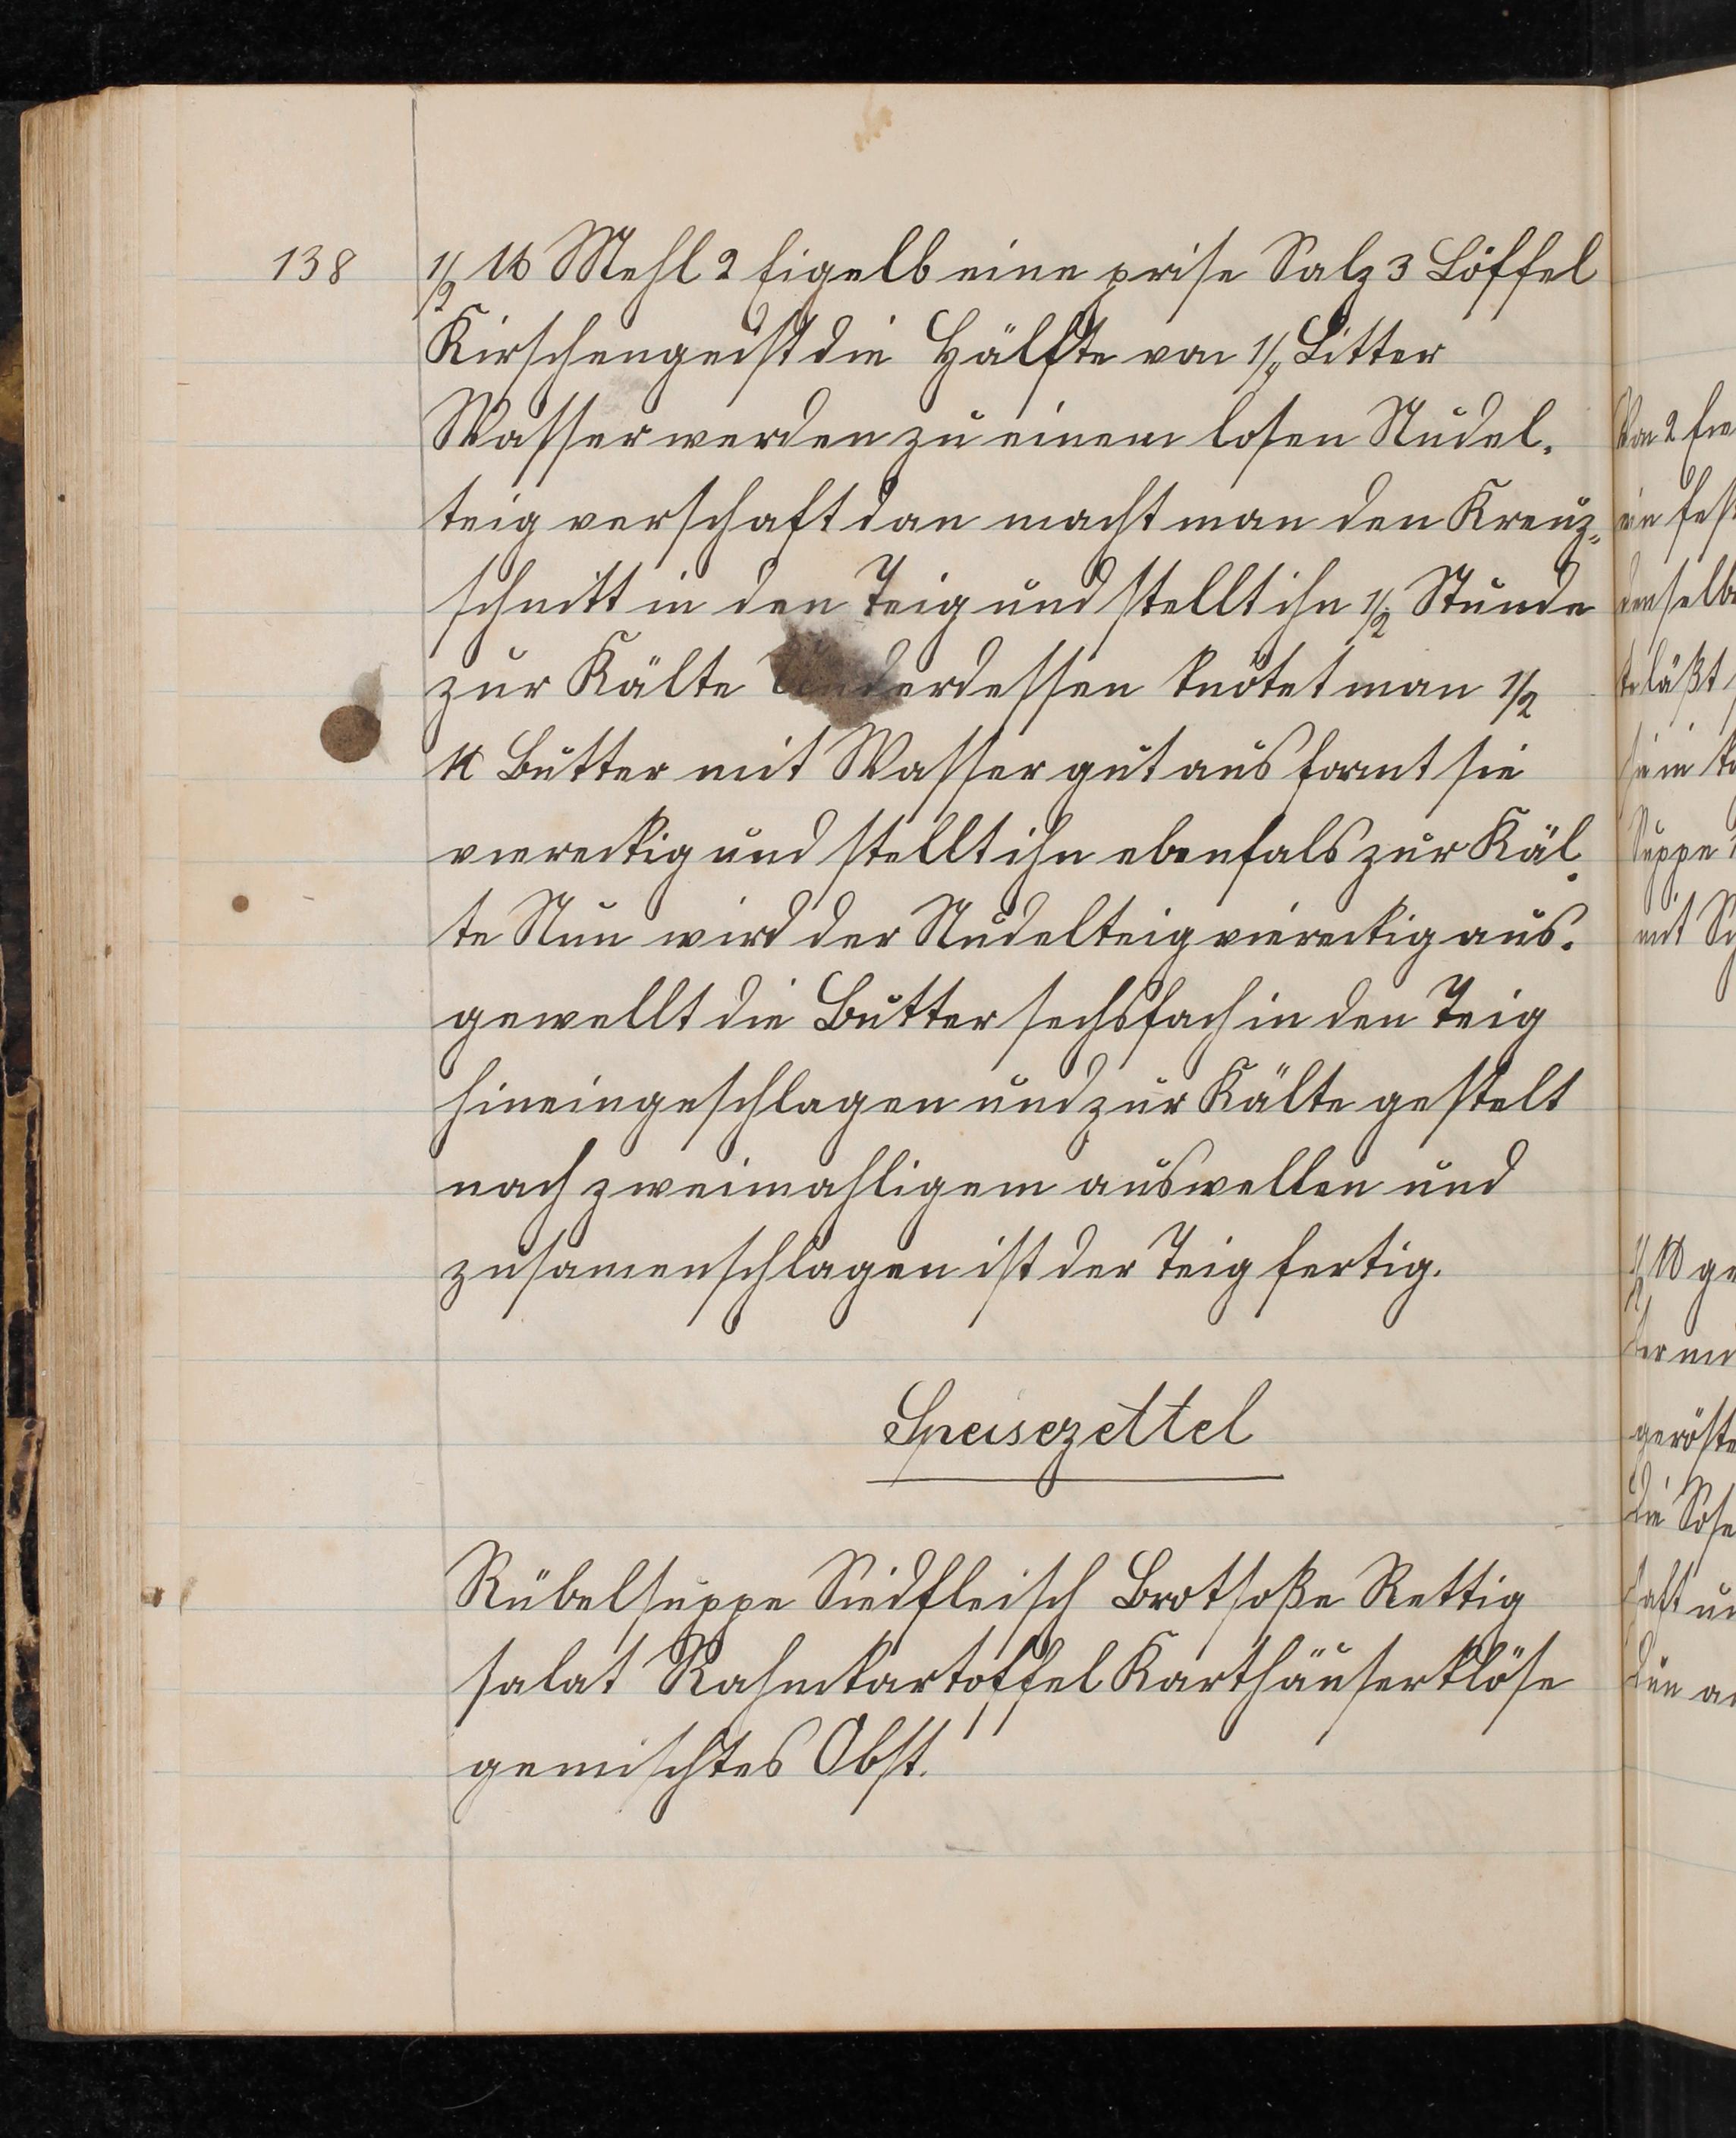 138
1/2 ℔ Mehl 2 Eigelb eine prise Salz 3 Löffel
Kirschengeist die Hälfte von 1/4 Litter
Wasser werden zu einem losen Nudel-
teig verschaft dan macht man den Kreuz=
schnitt in den Teig und stellt ihn 1/2 Stunde
zur Kälte Underdessen knötet man 1/2
℔ Butter mit Wasser gut aus formt sie
viereckig und stellt ihn ebenfals zur Käl-
te Nun wird der Nudelteig viereckig aus-
gewellt die Butter sechsfach in den Teig
hineingeschlagen und zur Kälte gestelt
nach zweimahligem auswellen und
zusamenschlagen ist der Teig fertig.
Speisezettel
Rübelsuppe Siedfleisch Brotsoße Rettig
salat Rahmkartoffel Karthäuserklöse
gemischtes Obst.